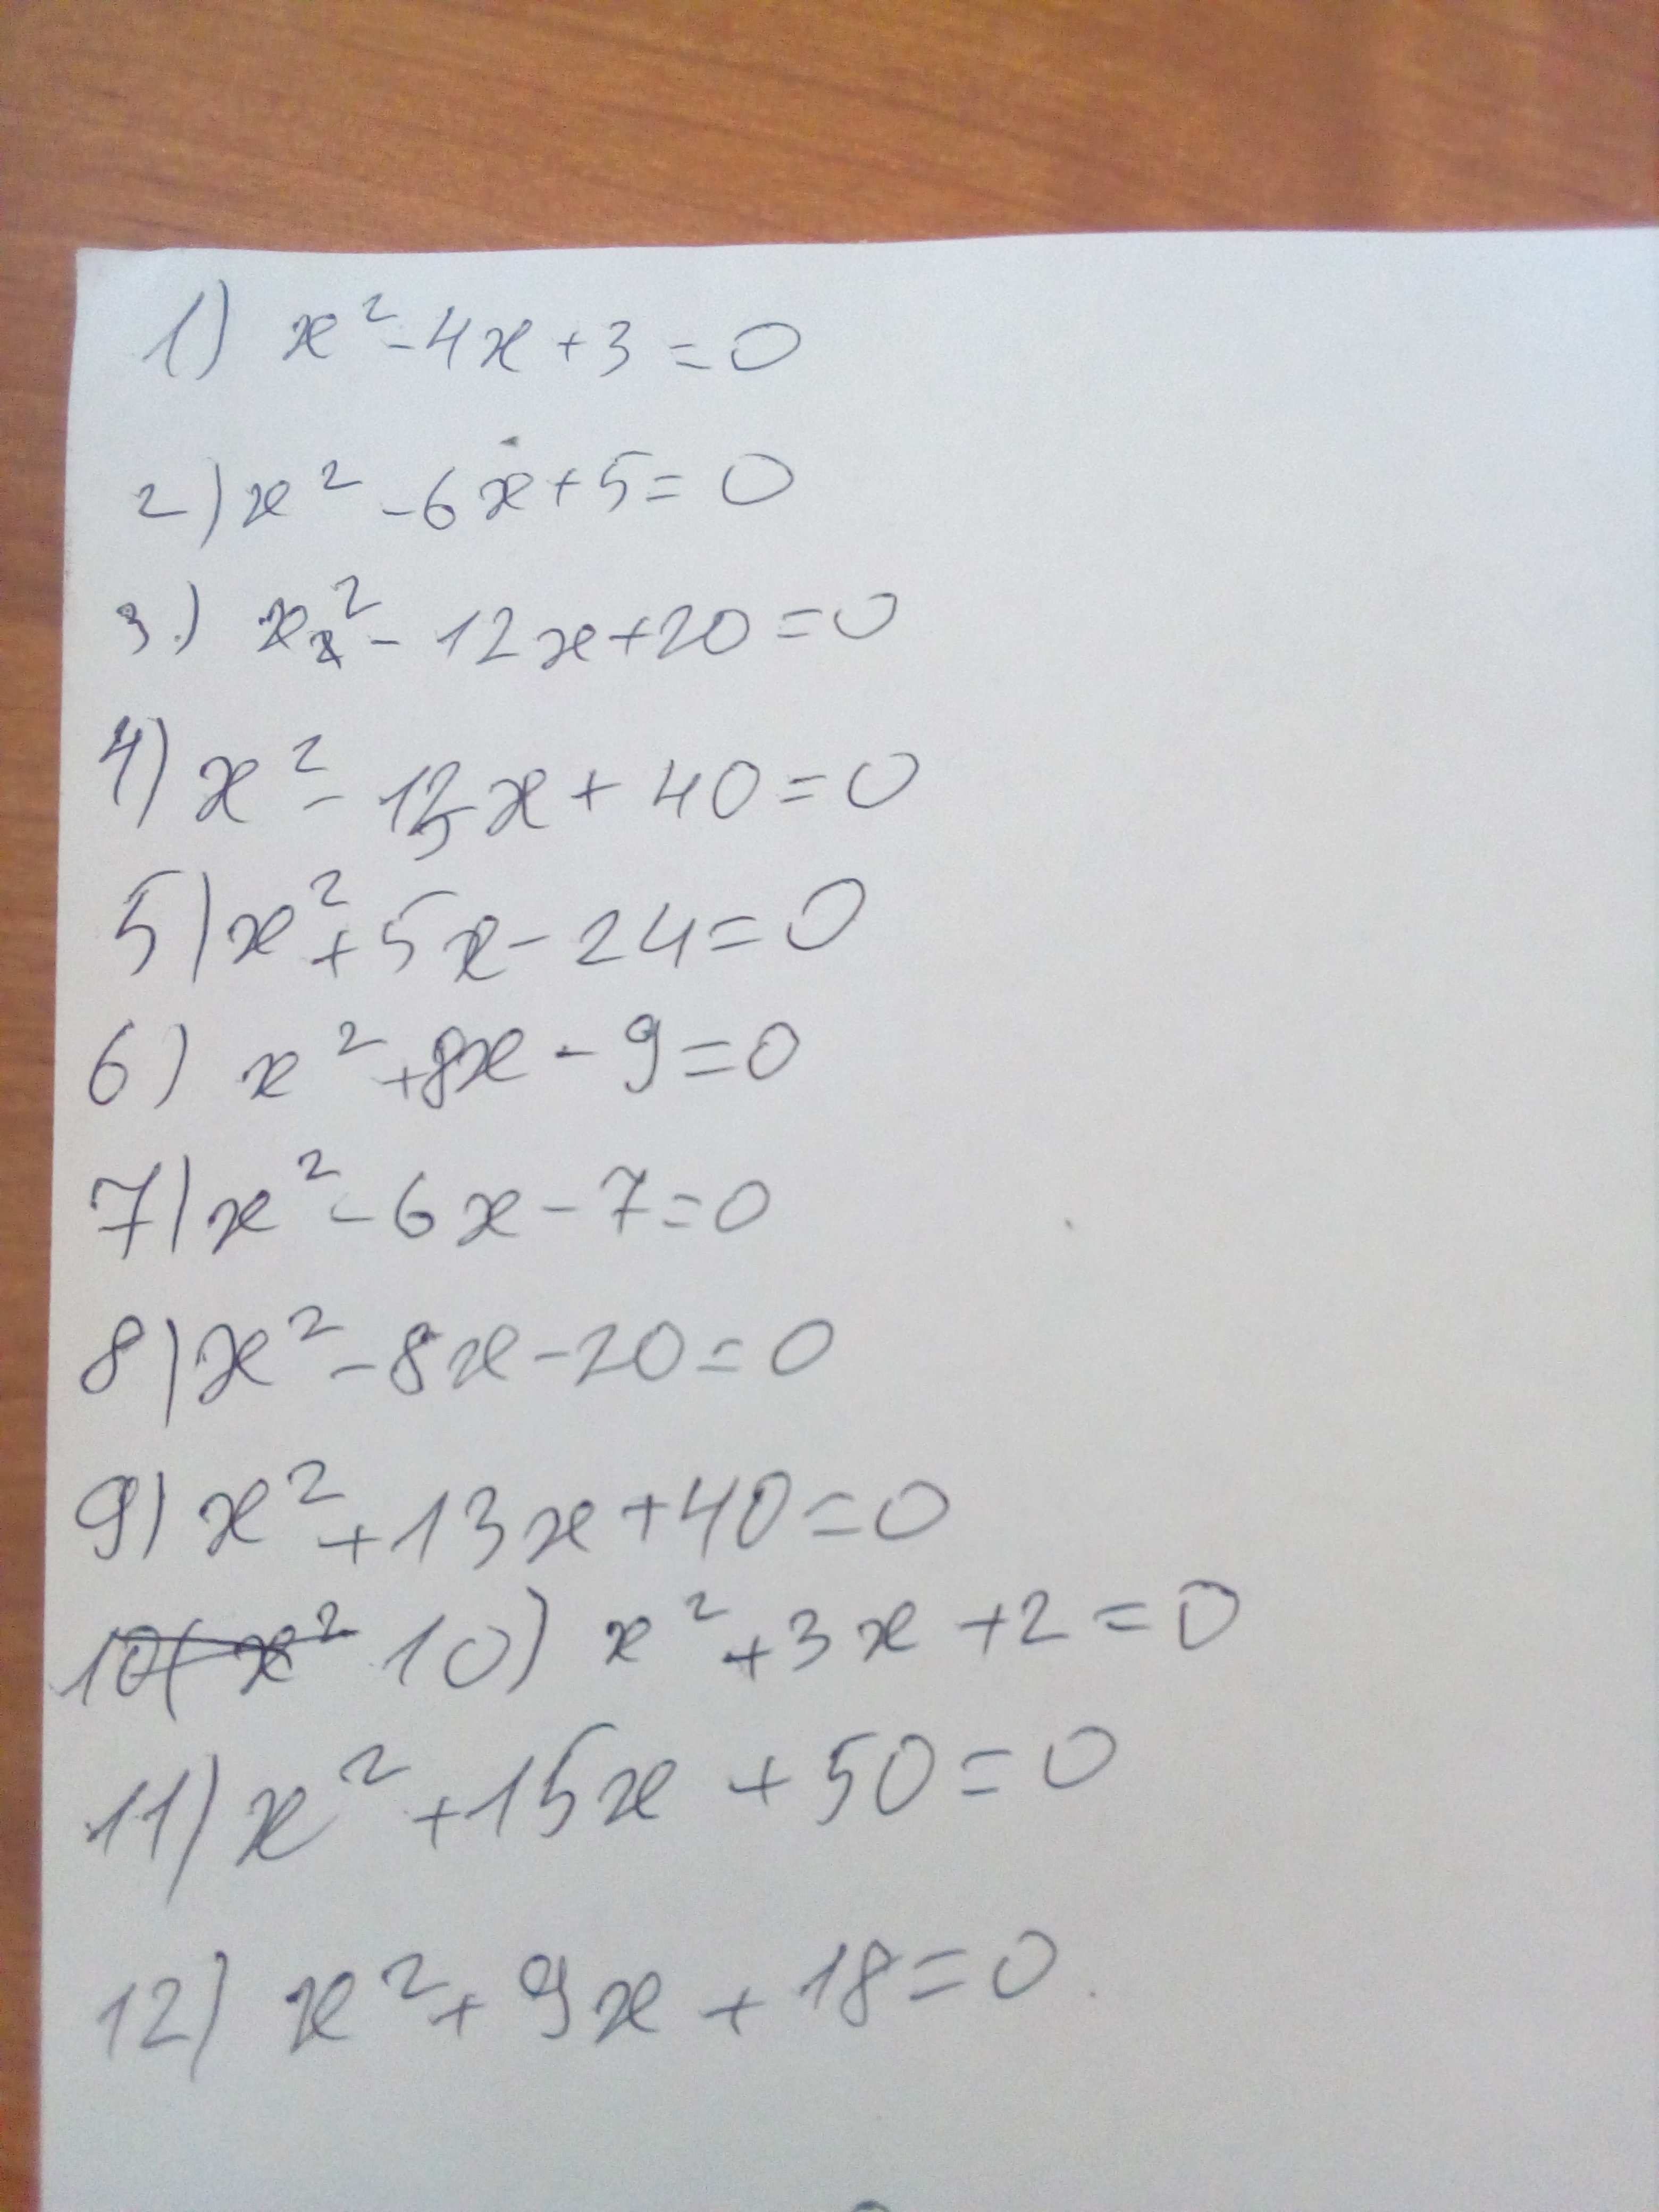 1) x² - 4x + 3 = 0
2) x² - 6x + 5 = 0
3.) x² - 12x + 20 = 0
4) x² - 13x + 40 = 0
5) x² + 5x - 24 = 0
6) x² + 8x - 9 = 0
7) x² - 6x - 7 = 0
8) x² - 8x - 20 = 0
9) x² + 13x + 40 = 0
10) x² + 3x + 2 = 0
11) x² + 15x + 50 = 0
12) x² + 9x + 18 = 0.